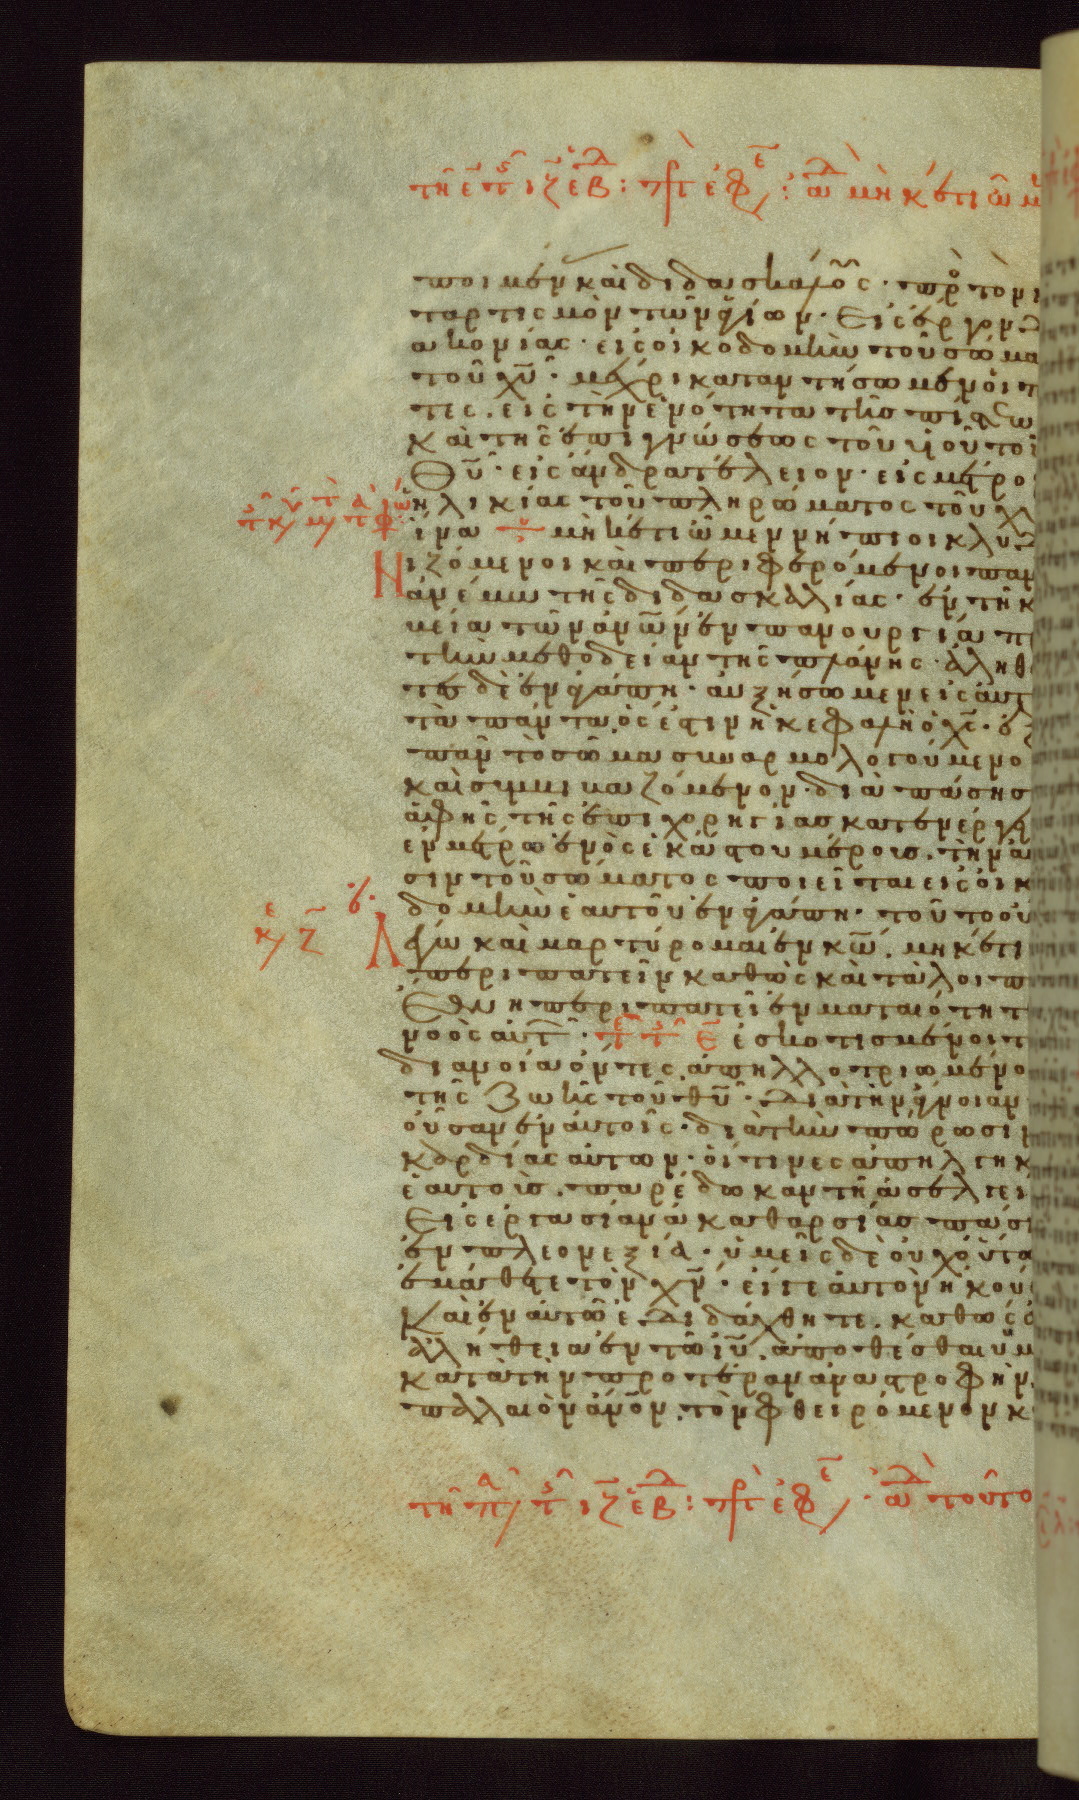 ποιμένας καὶ διδασκάλους · πρὸς τὸν
ταρτισμὸν τῶν ἁγίων · εἰς ἔργον
ακονίας · εἰς οἰκοδομὴν τοῦ σώμα
τοῦ χῡ · μέχρι καταντήσωμεν οἱ π
τες · εἰς τὴν ἑνότητα τῆς πίστεω
καὶ τῆς ἐπιγνώσεως τοῦ υἱοῦ τοῦ
θῡ · εἰς ἄνδρα τέλειον · εἰς μέτρο
ἡλικίας τοῦ πληρώματος τοῦ χῡ
ἵνα μηκέτι ὦμεν νήπιοι κλυδ
ιζόμενοι καὶ περιφερόμενοι παν
ἀνέμω τῆς διδασκαλίας · ἐν τῆ κ
υεία τῶν ἀνων ἐν πανουργία π
τὴν μεθοδείαν τῆς πλάνης · ἀληθ
τες δὲ ἐν ἀγάπη · αὐξήσωμεν εἰς αὐτ
τὰ πάντα ὅς ἐστιν ἡ κεφαλὴ ὁ χς · ἐξ
πᾶν τὸ σῶμα συναρμολογούμενο
καὶ συμβιβαζόμενον · διὰ πάσης
ἁφῆς τῆς ἐπιχορηγίας κατενέργ
ἐν μέτρω ἑνὸς ἑκάστου μέρους · τὴν αὔ
σιν τοῦ σώματος ποιεῖται εἰς οἰκ
δομὴν ἑαυτοῦ ἐν ἀγάπη · τοῦτο οὖ
λέγω καὶ μαρτύρομαι ἐν κῶ · μηκέτι
περιπατεῖν καθὼς καὶ τὰ λοιπ
ἔθνη περιπατεῖ ἐν ματαιότητ
νοὸς αὐτῶν · ἐσκοτισμένοι τ
διανοία ὄντες · ἀπηλλοτριωμένο
τῆς ζωῆς τοῦ θῡ · διὰ τὴν ἄγνοιαν
οὖσαν ἐν αὐτοῖς · διὰ τὴν πώρωσιν
καρδίας αὐτῶν · οἵτινες ἀπηλγηκ
ἑαυτοὺς · παρέδωκαν τῆ ἀσελγεί
εἰς ἐργασίαν ἀκαθαρσίας πάσ
ἐν πλεονεξία · ὑμεῖς δὲ οὐχ οὕτω
ἐμάθετε τὸν χν · εἴγε αὐτὸν ἠκού
καὶ ἐν αὐτῶ ἐδιδάχθητε · καθώς ἐ
ἀλήθεια ἐν τῶ ιῡ · ἀποθέσθαι ὑμ
κατὰ τὴν προτέραν ἀναστροφὴν
παλαιὸν ἄνον · τὸν φθειρόμενον κ